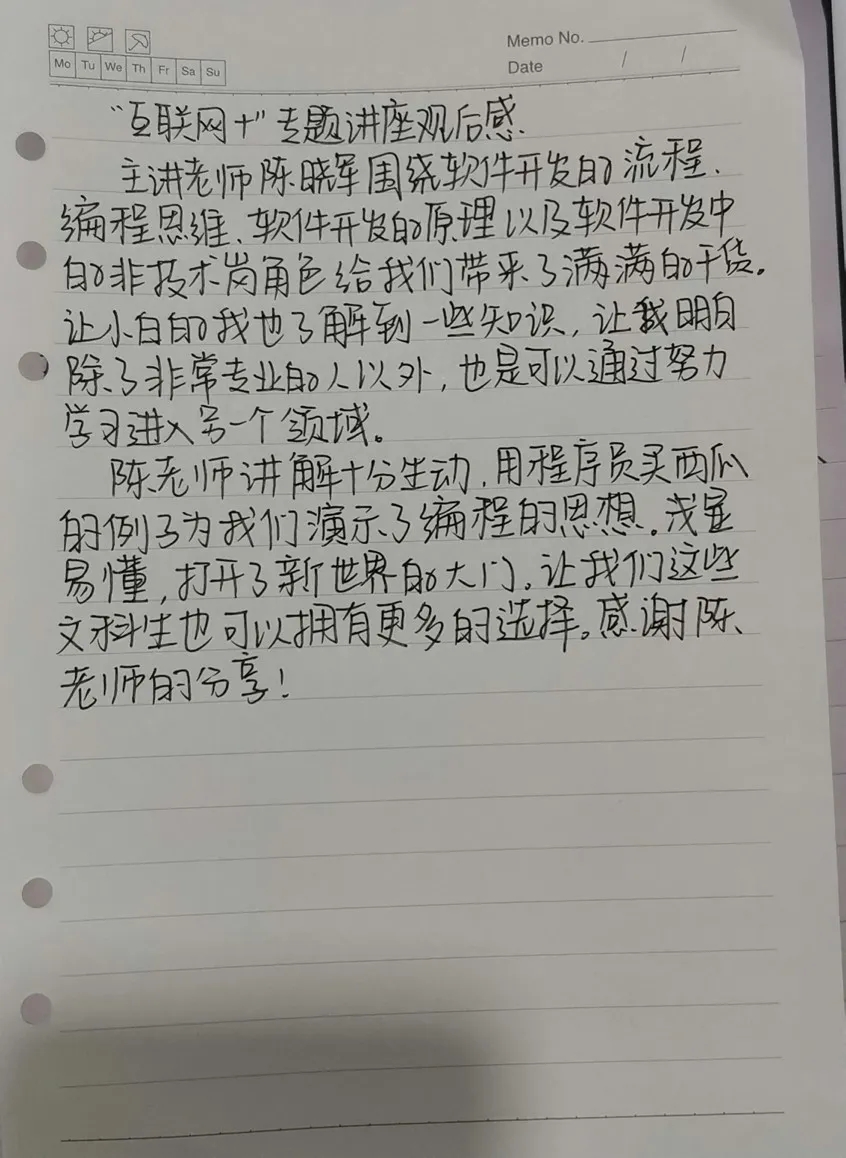 Memo No.
Mo Tu We Th Fr Sa Su
Date / /
“互联网+”专题讲座观后感.
主讲老师陈晓军围绕软件开发的流程、
编程思维、软件开发的原理以及软件开发中
的非技术岗角色给我们带来了满满的干货。
让小白的我也了解到一些知识，让我明白
除了非常专业的人以外，也是可以通过努力
学习进入另一个领域。
陈老师讲解十分生动，用程序员买西瓜
的例子为我们演示了编程的思想。浅显
易懂，打开了新世界的大门。让我们这些
文科生也可以拥有更多的选择。感谢陈
老师的分享！